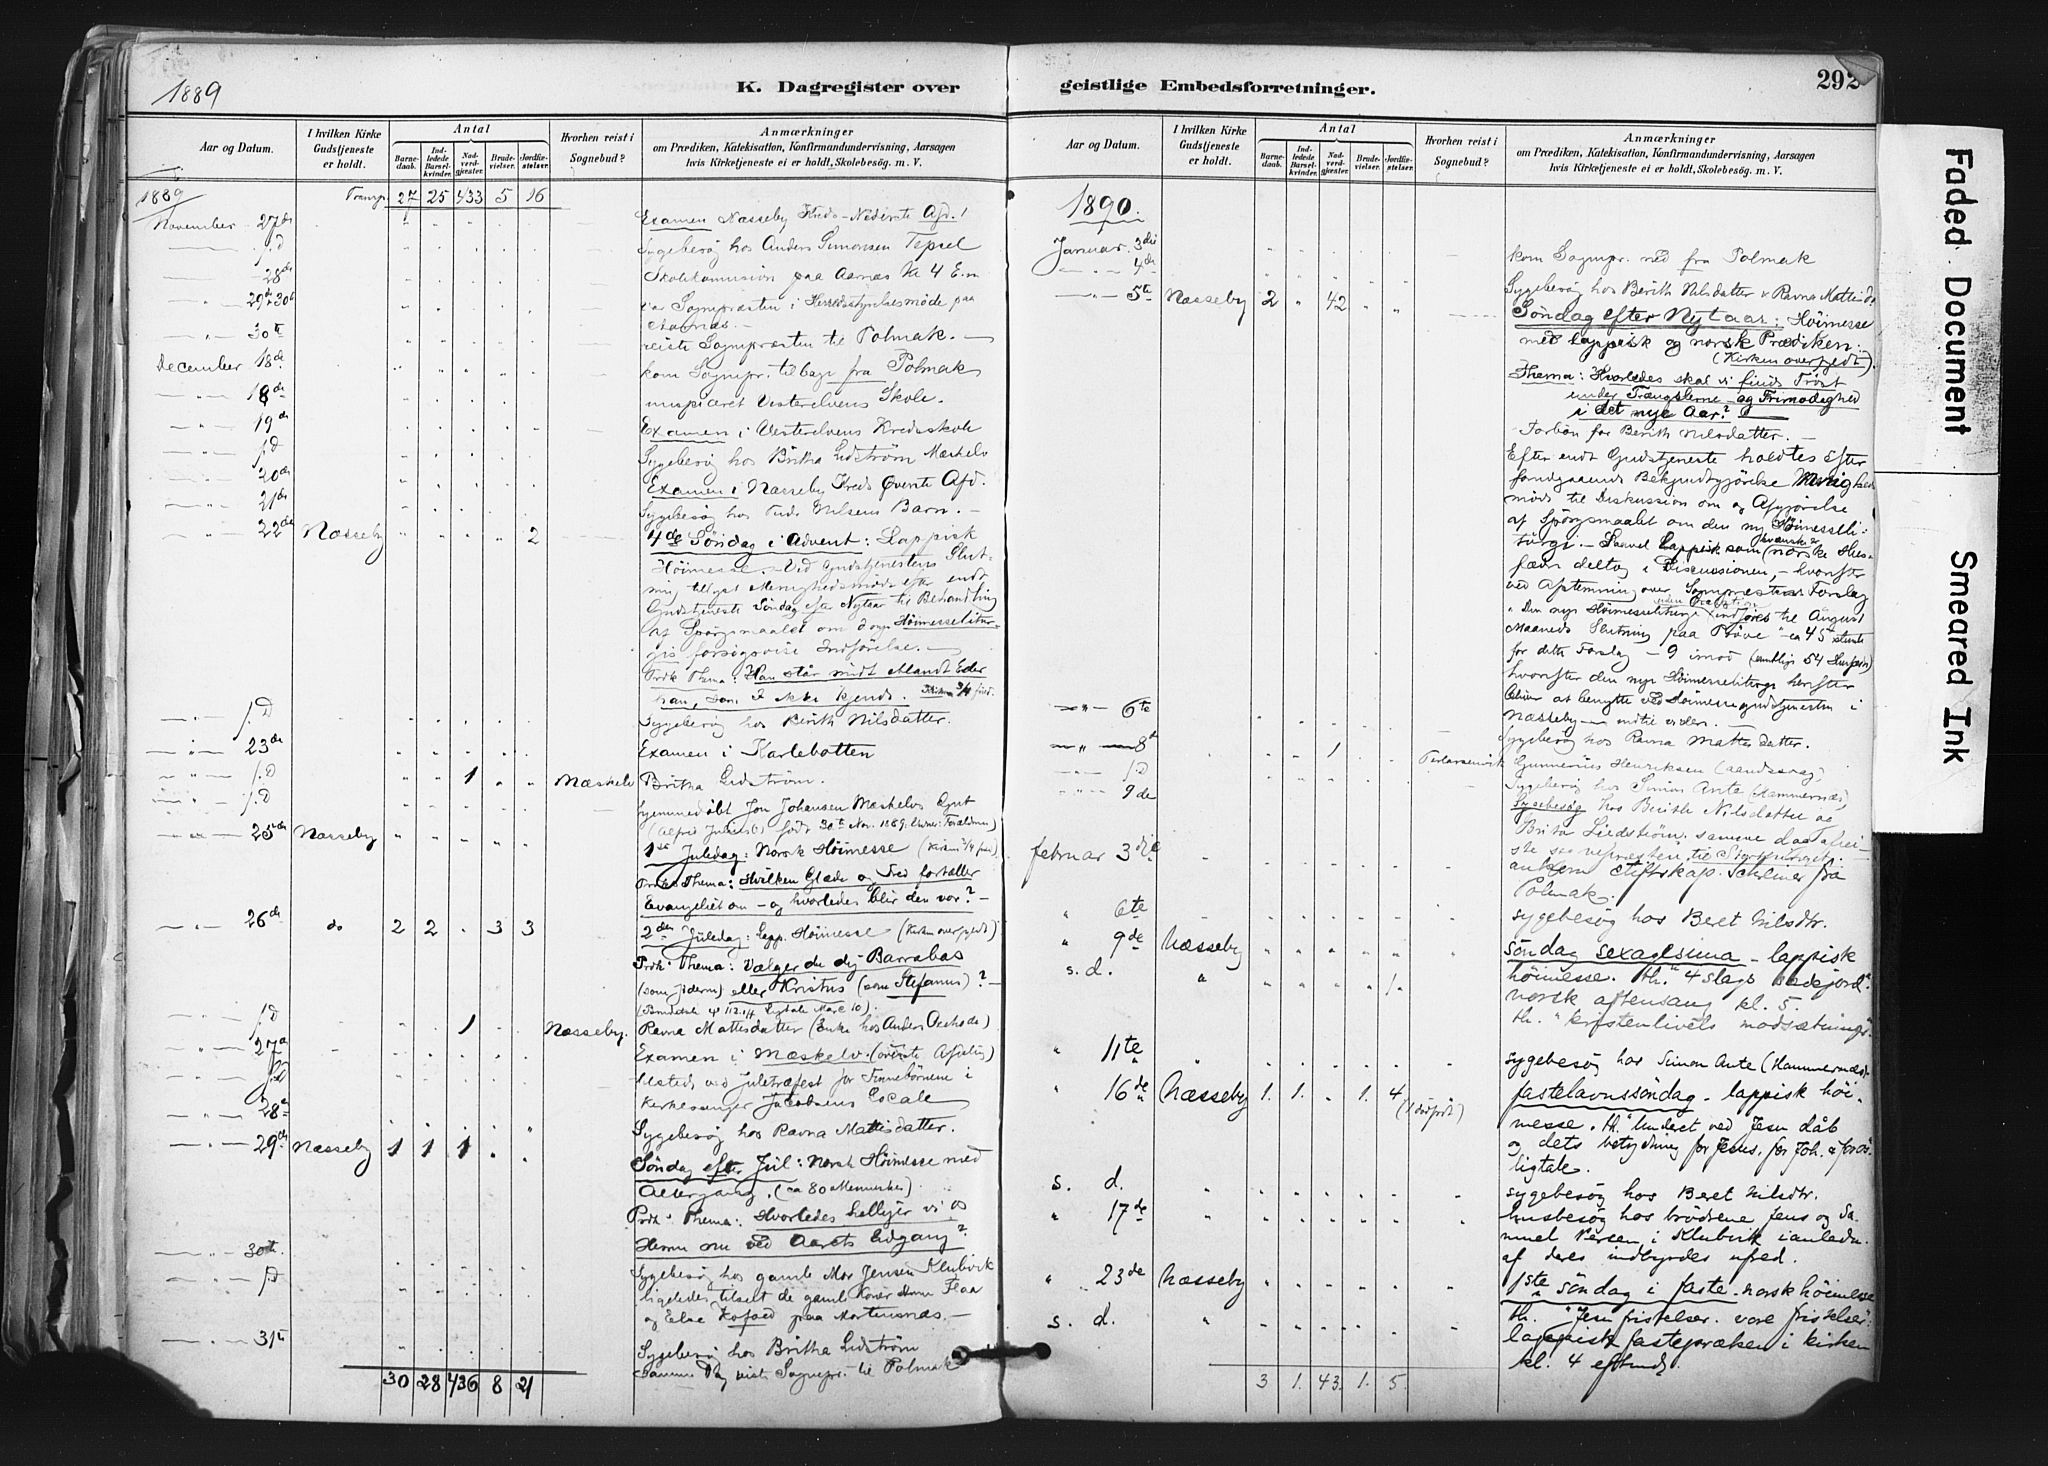 1889
K. Dagregister over
Aar og Datum.
I hvilken Kirke Gudstjeneste er holdt.
Antal
Barnedaab.
Indledede Barselkvinder.
Nadverdgjæster.
Brudevielser.
Jordfæstelser.
Hvorhen reist i Sognebud?
Anmærkninger
om Prædiken, Katekisation, Konfirmandundervisning, Aarsagen
hvis Kirketjeneste ei er holdt, Skolebesög. m. V.
1889
Transp. 27 25 433 5 16
November 27de Examen Næsseby Kreds - Nederste Afd.
s.D Sygebesög hos Anders Simonsen
28de paa Aarnæs Kl 4 E.m
29de-30te var Sognepræsten i Herredsstyrelsesmöde paa
Aarnæs.
30te reiste Sognepræsten til Polmak.
December 18de kom Sognepr. tilbage fra Polmak
18de inspiceret Vesterelvens Skole.
19de Examen i Vesterelvens Kredsskole
s.D Sygebesög hos Britha Lidström Mæskelv
20de Examen i Næsseby Kreds Överste Afd.
21de Sygebesög hos Nilsens Barn.
22de Næsseby 2 4de Söndag i Advent: Lappisk
Höimesse. Ved Gudstjenestens Slut-
ning tillyst Menighedsmöde efter endt
Gudstjeneste Söndag efter Nytaar til Behandling
af Spörgsmaalet om d nye Höimesselitur-
gis forsögsvise Indförelse.
Præk. Thema: Han står midt iblandt Eder
han, som I ikke kjende.
s.D Sygebesög hos Berith Nilsdatter.
23de Examen i Karlebotten
s.D 1 Mæskelv Britha Lidström.
s.D hjemmedöbt Jon Johansen Mæskelvs Gut
födt 30te Nov. 1889.
25de Næsseby 1ste Juledag: Norsk Höimesse
Thema: Hvilken Glæde og Fred fortæller
Evangeliet om - og hvorledes blir den vor?
26de do 2 2 3 3 2den Juledag: Lapp. Höimesse (Kirken overfyldt)
Præk. Thema: Vælger du dig Barrabas
(som Jöderne) eller Kristus (som Stefanus)?
s.D 1 Næsseby. Ravna Mattisdatter (Enke hos Anders
27de Examen i Mæskelv. (överste Afdeling)
s.D tilsteds ved Juletræfest for Finnebörnene i
Kirkesanger Jacobsens Locale
28de Sygebesög hos Ravna Mattisdatter.
29de Næsseby 1 1 1 Söndag efter Jul: Norsk Höimesse med
Altergang. (ca 80 Mennesker)
Præk. Thema: Hvorledes helliger vi os
Herren om ved Aarets Udgang?
30te Sygebesög hos gamle Mor Jensen Klubvik
s.D ligeledes tilset de gamle Koner
og Else Kofoed paa Mortensnæs.
31te Sygebesög hos Britha Lidström
Samme Dag reiste Sognepr. til Polmak
30 28 436 8 21
geistlige Embedsforretninger.
292
Aar og Datum.
I hvilken Kirke Gudstjeneste er holdt.
Antal
Barnedaab.
Indledede Barselkvinder.
Nadverdgjæster.
Brudevielser.
Jordfæstelser.
Hvorhen reist i Sognebud?
Anmærkninger
om Prædiken, Katekisation, Konfirmandundervisning, Aarsagen
hvis Kirketjeneste ei er holdt, Skolebesög. m. V.
1890.
Januar 3die kom Sognepr. ned fra Polmak
4de Sygebesög hos Berith Nilsdatter & Ravna Mattisd.
5te Næsseby 2 42 Söndag efter Nytaar: Höimesse
med lappisk og norsk Prædiken.
(Kirken overfyldt).
Thema: Hvorledes skal vi finde Tröst
under Trængslerne og Frimodighed
i det nye Aar?
Forbön for Berith Nilsdatter.
Efter endt Gudstjeneste holdtes efter
forudgaaende Bekjendtgjörelse Menigheds-
möde til Diskussion om og Afgjörelse
af Spörgsmaalet om den ny Höimesseli-
turgi. - Saavel Lappisk som kvænske norske Hus-
fædre deltog i Discussionen, - hvorefter
ved Afstemning over Sognepræstens Forslag
"Den nye Höimesseliturgi indföres til August
Maaneds Slutning paa Pröve" ca 45 stemte
for dette Forslag - 9 imod (samtlige 54
hvorefter den nye Höimesseliturgi herefter
bliver at benytte ved Höimessegudstjenesten i
Næsseby
6te Sygebesög hos Ravna Mattisdatter.
8de 1 Gunnerius Henriksen
s.D Sygebesög hos Simon Ante (Hammernæs)
9de Sygebesög hos Berith Nilsdatter og
Brita Lidström. samme dag afrei-
ste til Storthinget.
februar 3die ankom stiftskap. fra
Polmak.
6te sygebesög hos Beret Nilsdtr.
9de Næsseby söndag sexagesima - lappisk
höimesse. th. "4 slags sædejord".
s. d. 1 norsk aftensang kl. 5.
th. "kristenlivets modsætninger"
11te sygebesög hos Simon Ante (Hammernæs).
16de Næsseby 1. 1. 1. 4 (1 dödfödt) fastelavnssöndag - lappisk höi-
messe. th. "Underet ved Jesu dåb
og dets betydning for Jesus, for Joh. & for os".
ligtale.
s. d. sygebesög hos Beret Nilsdtr.
17de husbesög hos brödrene Jens og Sa-
muel Persen i Klubvik i anledn.
af deres indbyrdes ufred.
23de Næsseby 1ste söndag i faste. norsk höimesse
th. "Jesu fristelser. vore fristelser".
s. d. lappisk fastepræken i kirken
kl. 4 eftmd.
3 1. 43. 1. 5.
Faded Document
Smeared Ink